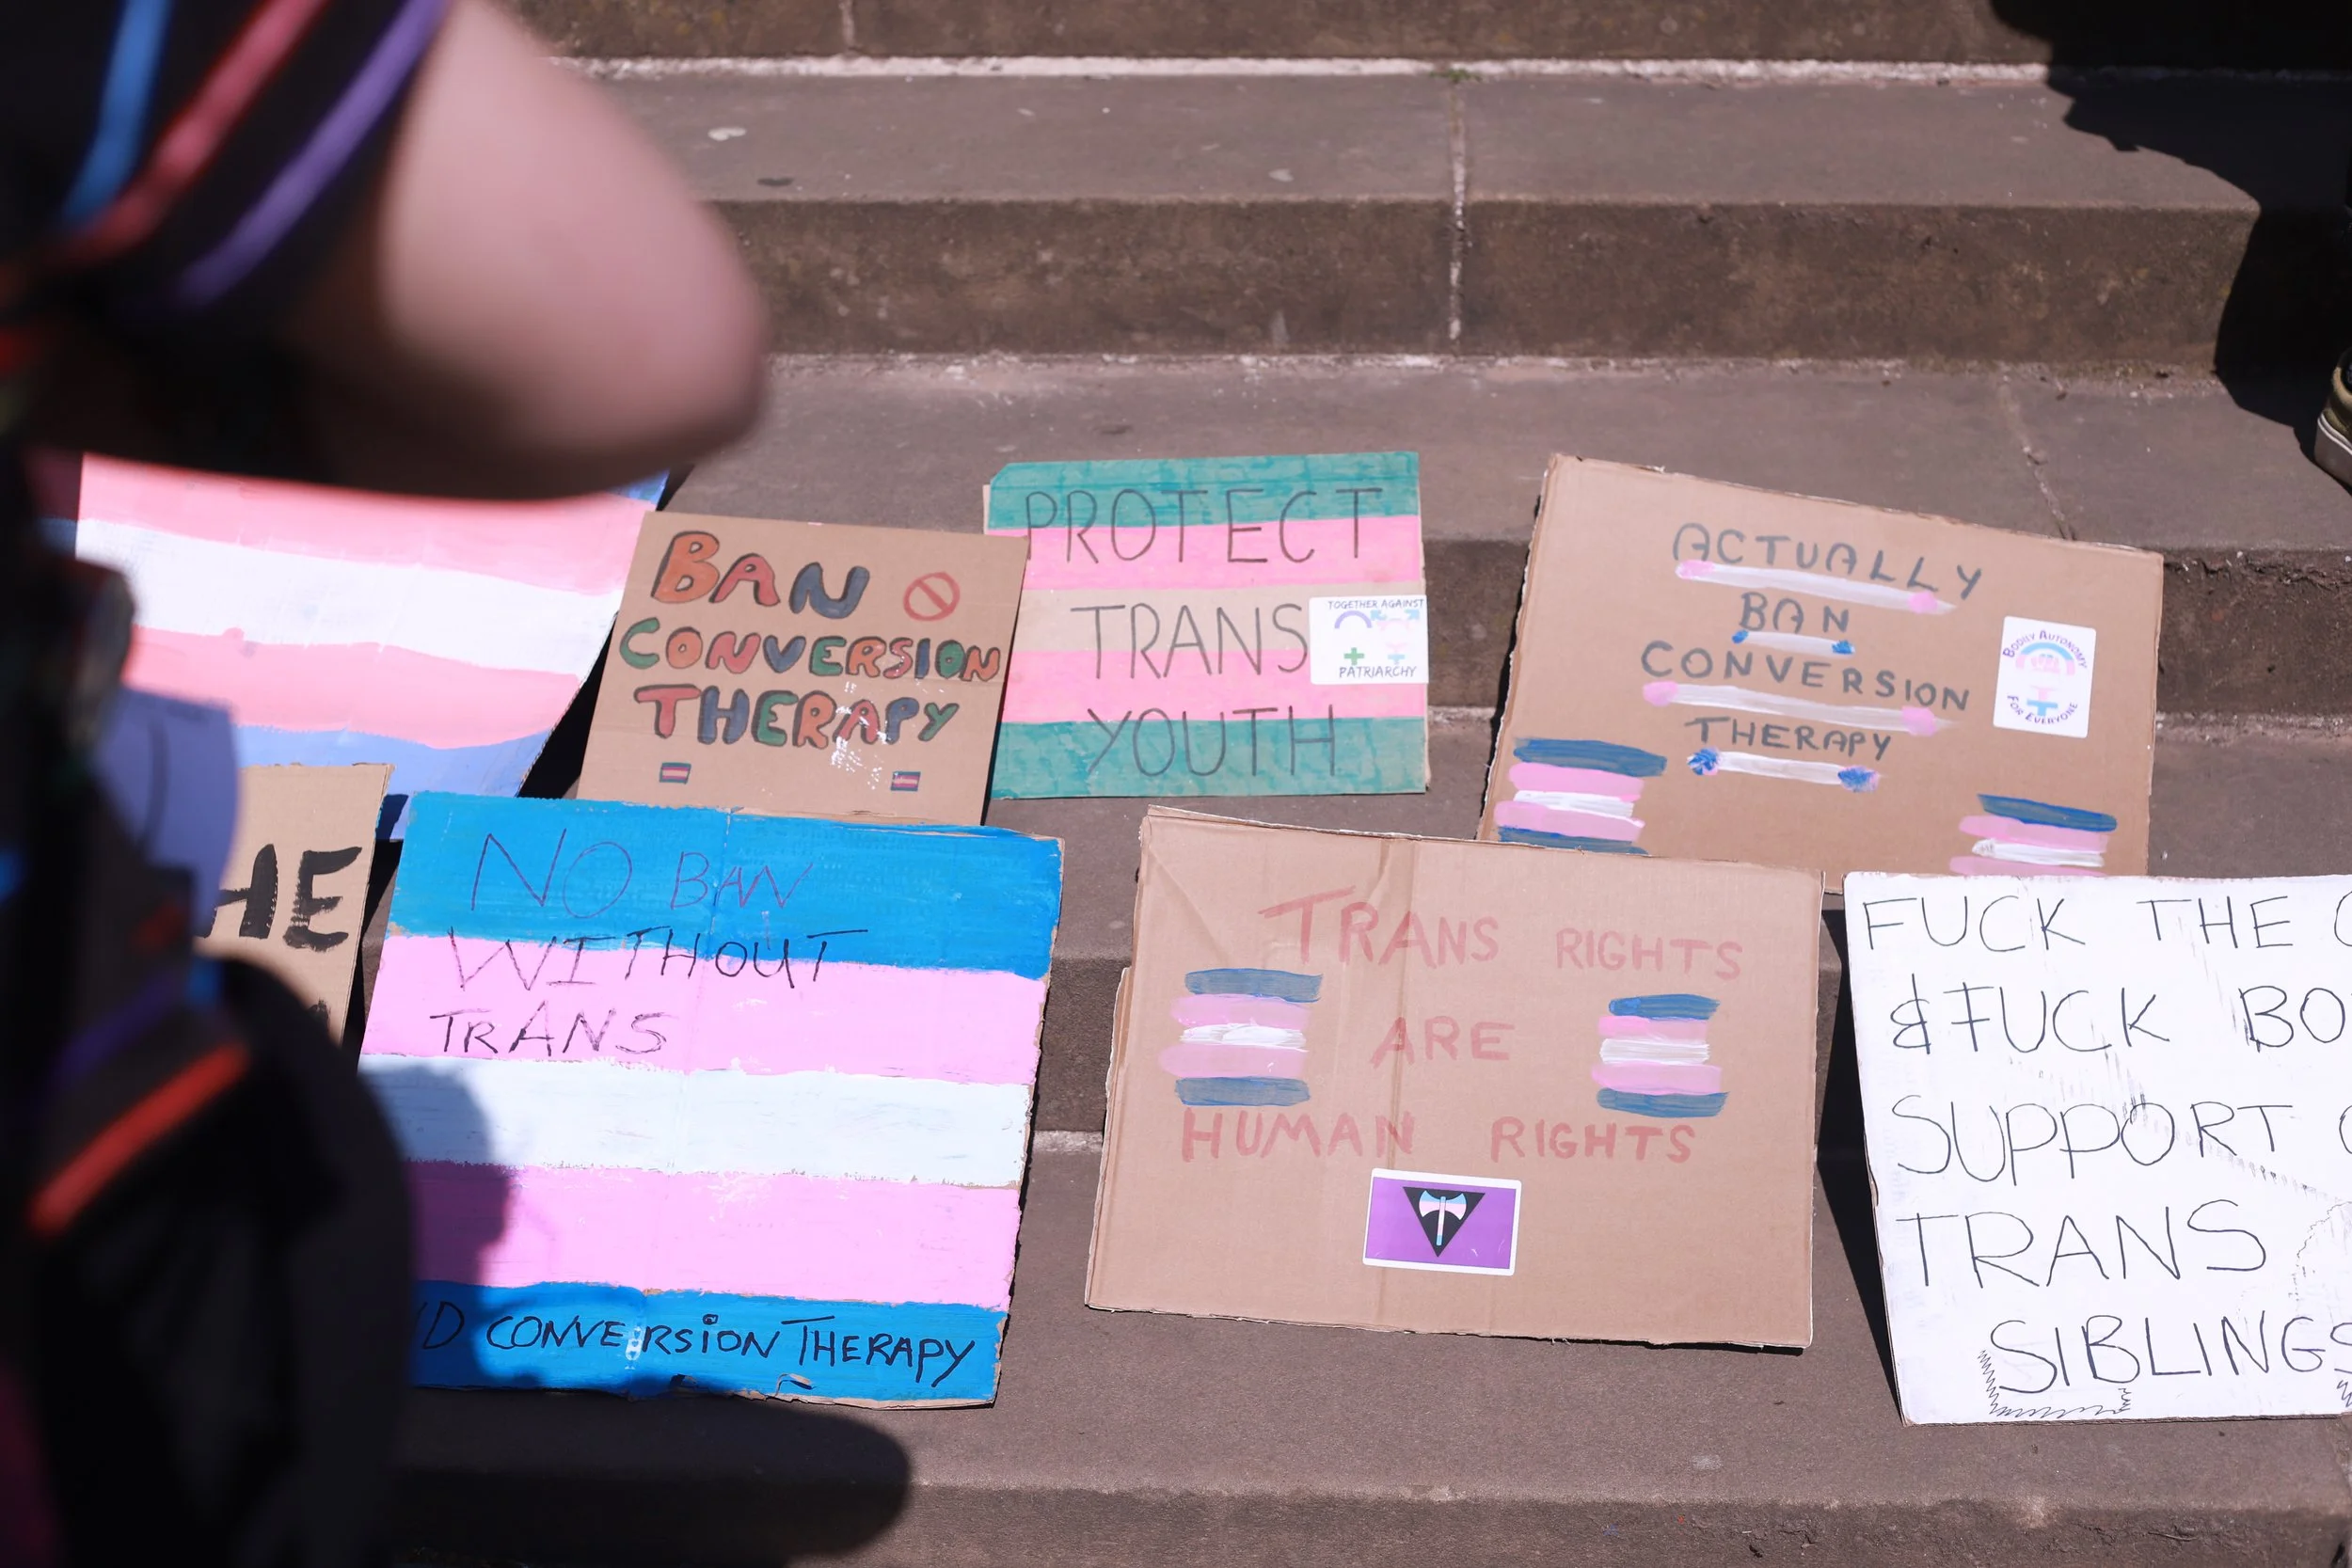 BAN
CONVERSION
THERAPY
PROTECT
TRANS
YOUTH
TOGETHER AGAINST
PATRIARCHY
ACTUALLY
BAN
CONVERSION
THERAPY
BODILY AUTONOMY
FOR EVERYONE
HE
NO BAN
WITHOUT
TRANS
CONVERSION THERAPY
TRANS RIGHTS
ARE
HUMAN RIGHTS
FUCK THE
& FUCK BO
SUPPORT
TRANS
SIBLINGS